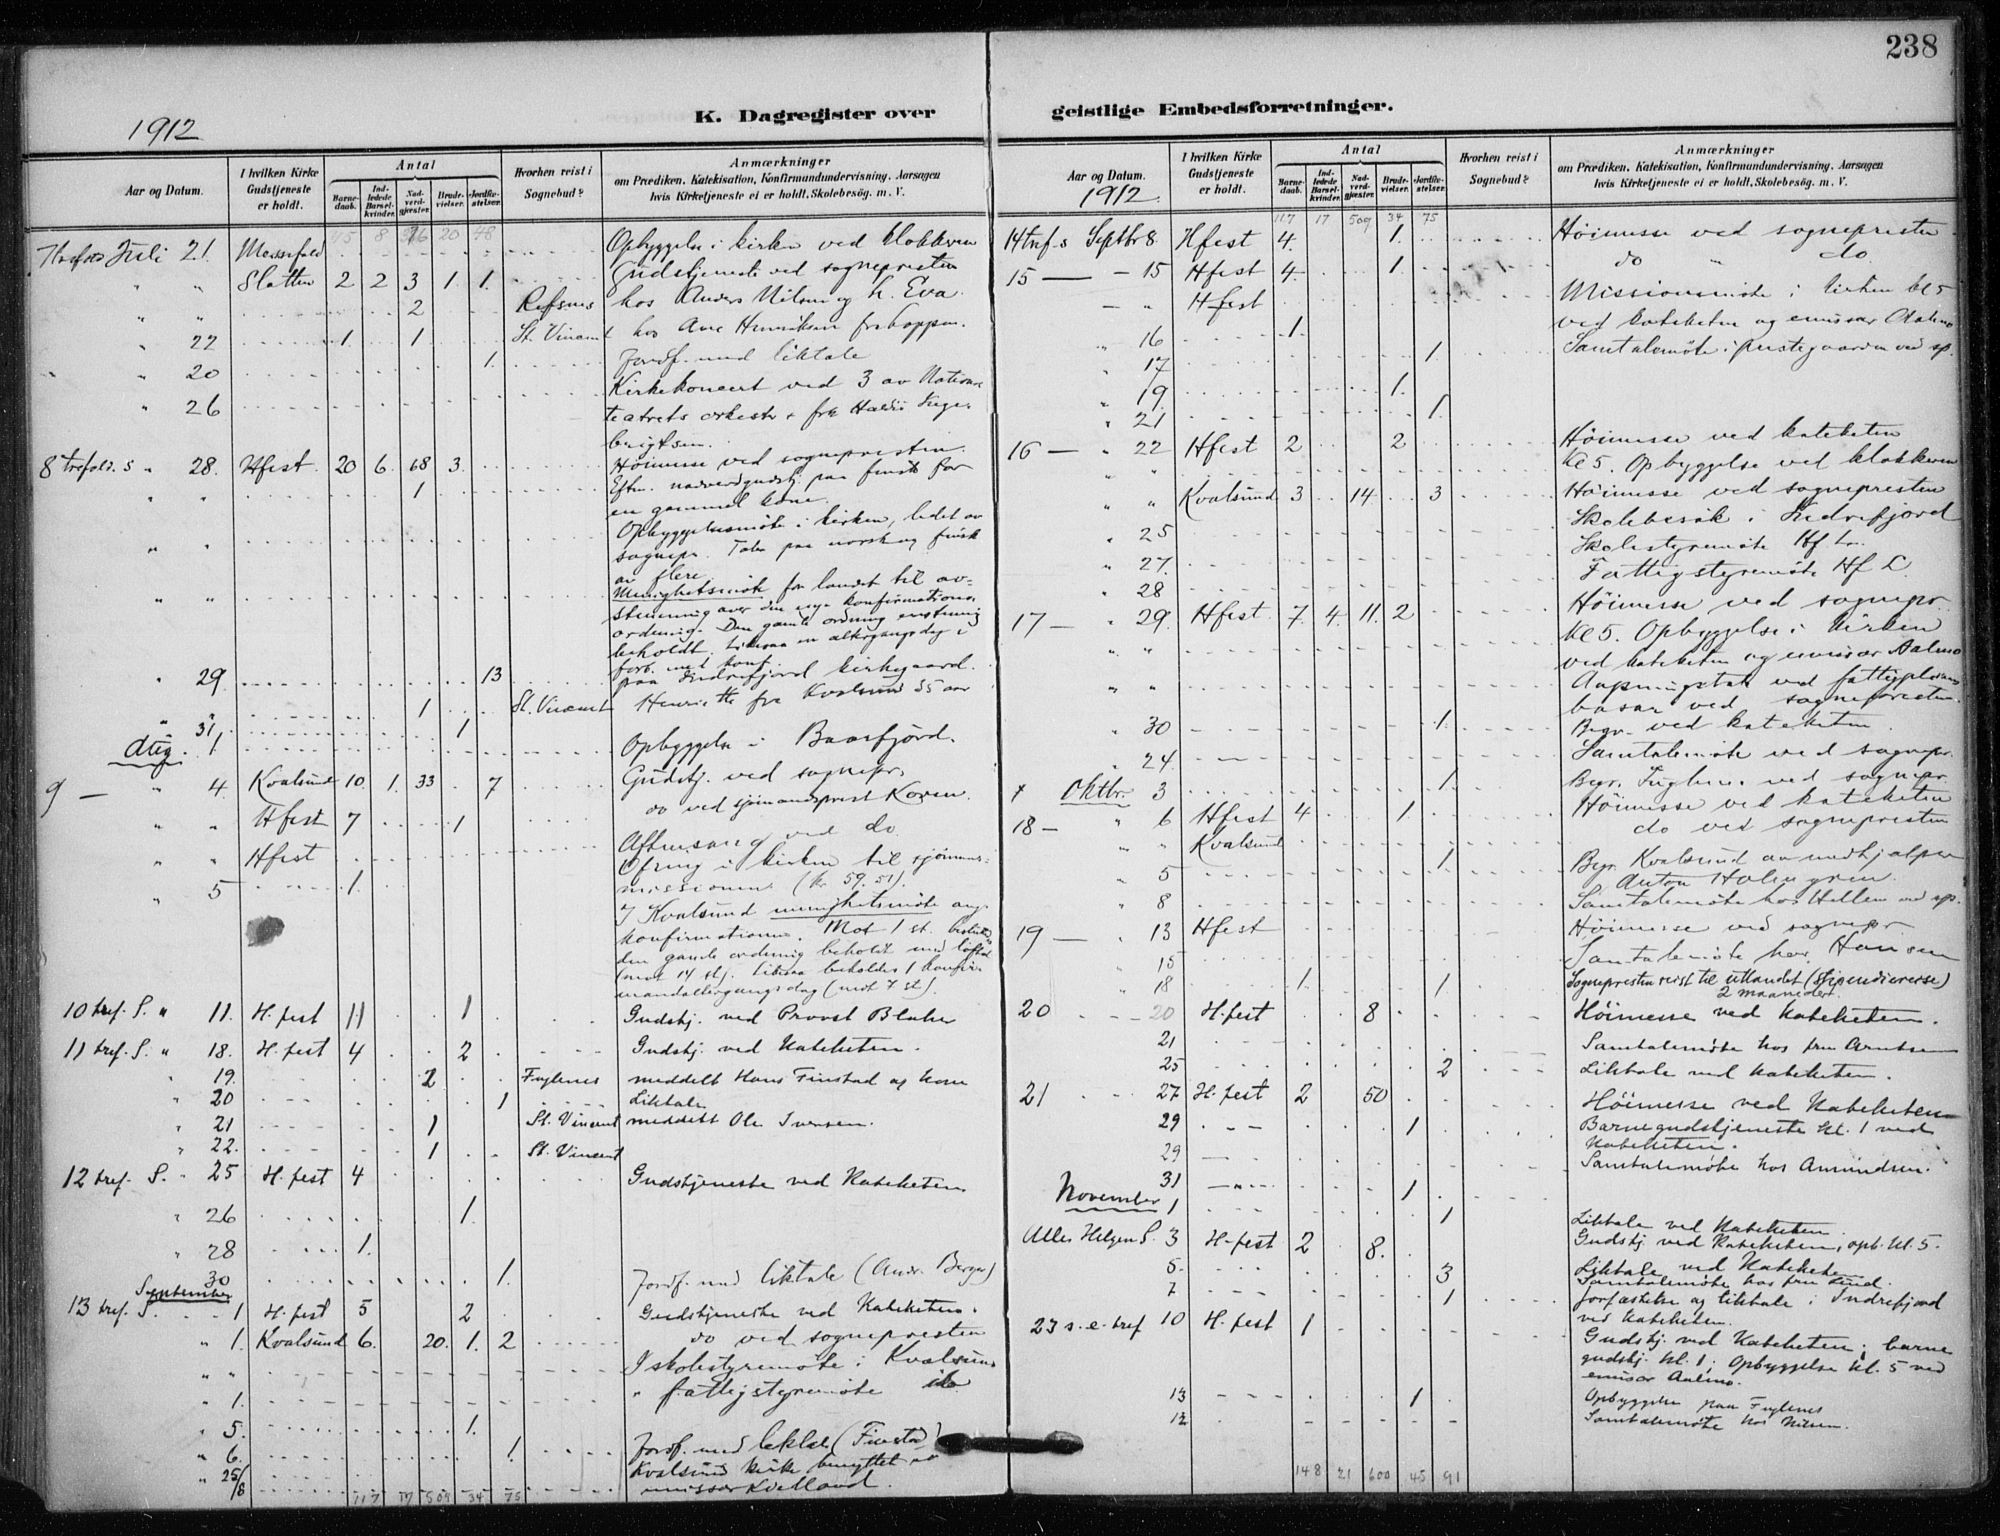 238
K. Dagregister over geistlige Embedsforretninger.
1912
Aar og Datum.
I hvilken Kirke Gudstjeneste er holdt.
Antal
Barnedaab.
Indledede Barselkvinder.
Nadverdgjæster.
Brudevielser.
Jordfæstelser.
Hvorhen reist i Sognebud?
Anmærkninger
om Prædiken, Katekisation, Konfirmandundervisning, Aarsagen
hvis Kirketjeneste ei er holdt, Skolebesøg. m. V.
Juli 21. Opbyggelse i kirken ved klokkeren
" " Slotten 2 2 3 1 1. Gudstjeneste ved sognepresten
" " 2 Refsnes hos Anders Nilsen og h. Eva.
" 22 1 1 St. Vincent
" 20 1. Jordf. med liktale
" 26 Kirkekoncert ved 3 av
teatrets orkester
8 trefold. s " 28. Hfest 20 6 68 3 Høimesse ved sognepresten.
" " 1
en gammel kone.
" " Opbyggelsesmøte i kirken, ledet av
sognepr. Taler paa norsk og finsk
av flere.
" " Menighetsmøte for landet til av-
stemning over den nye konfirmations-
ordning. Den gamle ordning enstemmig
beholdt.
forb. med konf.
" 29 13 paa Indrefjord kirkegaard.
" " 1 St. Vincent
" 31. 1
Aug. 1 Opbyggelse i
9 — " 4. Kvalsund 10 1. 33 7 Gudstj. ved sognepr.
" " Hfest 7 1 do ved sjømandsprest Koren.
" " Hfest Aftensang ved do.
Ofring i kirken til sjømans-
" 5 1. missionen (kr. 59.51).
I Kvalsund menighetsmøte ang.
konfirmationen. Mot 1 st.
den gamle ordning beholdt
(mot 14 st).
(mot 7 st).
10 tref. S. " 11. H.fest 11 1 Gudstj. ved Provst
11 tref. S. " 18. H.fest 4 2 Gudstj. ved Kateketen.
" 19. 2 Fuglenes meddelt Hans Finstad og kone
" 20 1 Liktale
" 21 1 St. Vincent meddelt Ole Iversen.
" 22. 1 St. Vincent
12 tref. S. " 25 H.fest 4 Gudstjeneste ved Kateketen
" 26 1.
" 28 1.
30 1. Jordf. med liktale (Andr. Berger)
September
13 tref. S. 1 H.fest 5 2 Gudstjeneste ved Kateketen.
" 1. Kvalsund 6. 20. 1. 2 do ved sognepresten
" " skolestyremøte i Kvalsund
" 1. " fattigstyremøte
" 5. 1.
" 6. 1. Jordf. med liktale (Finstad)
" 25/8 Kvalsund kirke benyttet
117 17 509 34 75
Aar og Datum.
1912
I hvilken Kirke Gudstjeneste er holdt.
Antal
Barnedaab.
Indledede Barselkvinder.
Nadverdgjæster.
Brudevielser.
Jordfæstelser.
Hvorhen reist i Sognebud?
Anmærkninger
om Prædiken, Katekisation, Konfirmandundervisning, Aarsagen
hvis Kirketjeneste ei er holdt, Skolebesøg. m. V.
117 17 509 34 75
14 tref. s Septbr 8. Hfest 4. 1. Høimesse ved sognepresten
15 — — 15 Hfest 4. 1. do " do.
— " Hfest Missionsmøte i kirken kl 5
ved kateketen og emissær Aalmo
" 16 1. Samtalemøte i prestegaarden ved sp.
" 17 1
" 19. 1.
" 21 1.
16 — " 22 Hfest 2 2 Høimesse ved kateketen
" Kl 5. Opbyggelse ved klokkeren
" " Kvalsund 3 14 3 Høimesse ved sognepresten
" 25 Skolebesøk i Indrefjord
" 27. Skolestyremøte Hf. L.
" 28 Fattigstyremøte Hf L.
17 — " 29. Hfest 7. 4. 11. 2 Høimesse ved sognepr.
" " Kl 5. Opbyggelse i kirken
ved kateketen og emissær Aalmo
" "
basar ved sognepresten.
" 30 1. Begr. ved kateketen.
" 24. Samtalemøte ved sognepr.
Oktbr. 3 1. Begr. Fuglenes ved sognepr.
18 — " 6 Hfest 4 1 Høimesse ved kateketen
" " Kvalsund do ved sognepresten
" 5 1 Begr. Kvalsund av medhjælper
Anton Holmgren.
" 8 Samtalemøte hos Hellem ved sp.
19 — " 13 Hfest Høimesse ved sognepr.
" 15 Samtalemøte hos Hansen
" 18 1 1 Sognepresten reist til utlandet (Stipendiereise)
2 maaneder.
20 20 H.fest 8 Høimesse ved Kateketen.
21 Samtalemøte hos fru Arntsen
25 2 Liktale ved Kateketen.
21 27 H.fest 2 50 Høimesse ved Kateketen
29 1 Barnegudstjeneste kl. 1 ved
Kateketen.
29 Samtalemøte hos Amundsen.
31 1
November 1 1 Liktale ved Kateketen.
Alle Helgen S. 3 H.fest 2 8. Gudstj. ved Kateketen, opb. kl. 5.
5. 3 Liktale ved Kateketen
7 1 Samtalemøte hos fru Lund.
Jorfæstelse og liktale i Indrefjord
ved Kateketen.
23 s. e. tref 10 H.fest 1 Gudstj. ved Kateketen; barne
gudstj. kl. 1; Opbyggelse kl. 5 ved
emisær Aalmo.
13 1 Opbyggelse paa Fuglenes
12 Samtalemøte hos Nilsen.
148 21 600 45 91